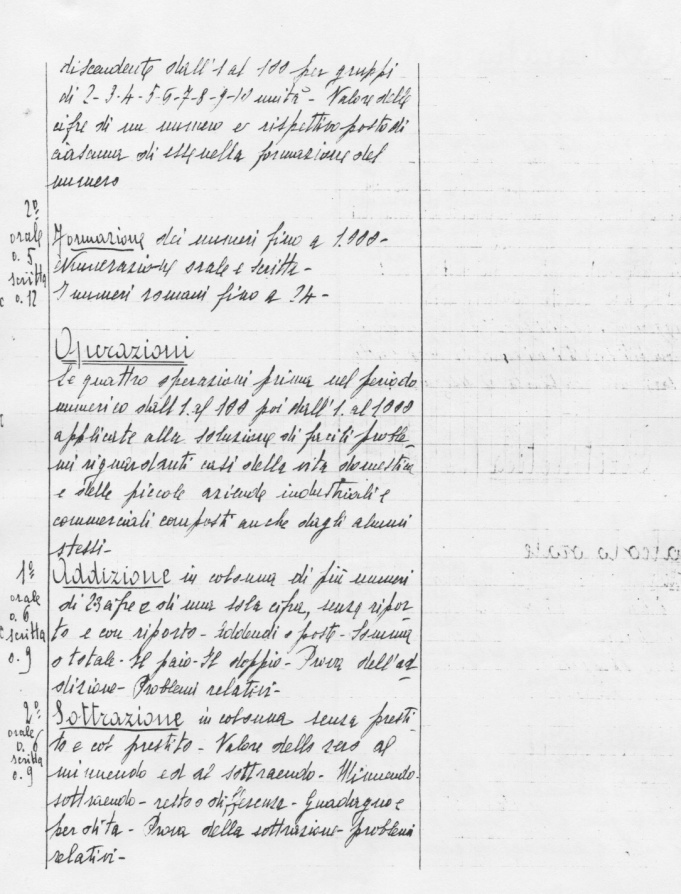 discendente dall'1 al 100 per gruppi
di 2-3-4-5-6-7-8-9-10 unità - Valore delle
cifre di un numero e rispettivo posto di
ciascuna di esse nella formazione del
numero
2º
orale
o. 5
scritta
o. 12
Formazione dei numeri fino a 1.000-
Numerazione orale e scritta-
I numeri romani fino a 24-
Operazioni
Le quattro operazioni prima nel periodo
numerico dall'1. al 100 poi dall'1. al 1000
applicate alla soluzione di facili proble_
mi riguardanti casi della vita domestica
e delle piccole aziende industriali e
commerciali composti anche dagli alunni
stessi-
1º
orale
o. 6
scritta
o. 9
Addizione in colonna di più numeri
di 2 3 cifre e di una sola cifra, senza ripor_
to e con riporto - Addendi o poste - Somma
o totale - Il paio - Il doppio - Prova dell'ad
dizione - Problemi relativi-
2º
orale
o. 6
scritta
o. 9
Sottrazione in colonna senza presti_
to e col prestito - Valore dello zero al
minuendo ed al sottraendo - Minuendo-
sottraendo - resto o differenza - Guadagno e
perdita - Prova della sottrazione - problemi
relativi-
calcolo orale